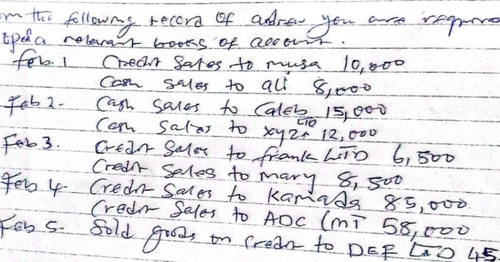 m the following record of andrew you are require
opela relevant books of account.
Feb. 1 Credit Sales to musa 10,000
Cash sales to ali 8,000
Feb 2. Cash sales to Caleb 15,000
Cash sales to xyz LTD 12,000
Feb 3. Credit Sales to frank LTD 6,500
Credit Sales to mary 8,500
Feb 4. Credit Sales to Kamada 85,000
Credit Sales to ADC (mT 58,000
Feb 5. Sold goods on credit to DEF LTD 45